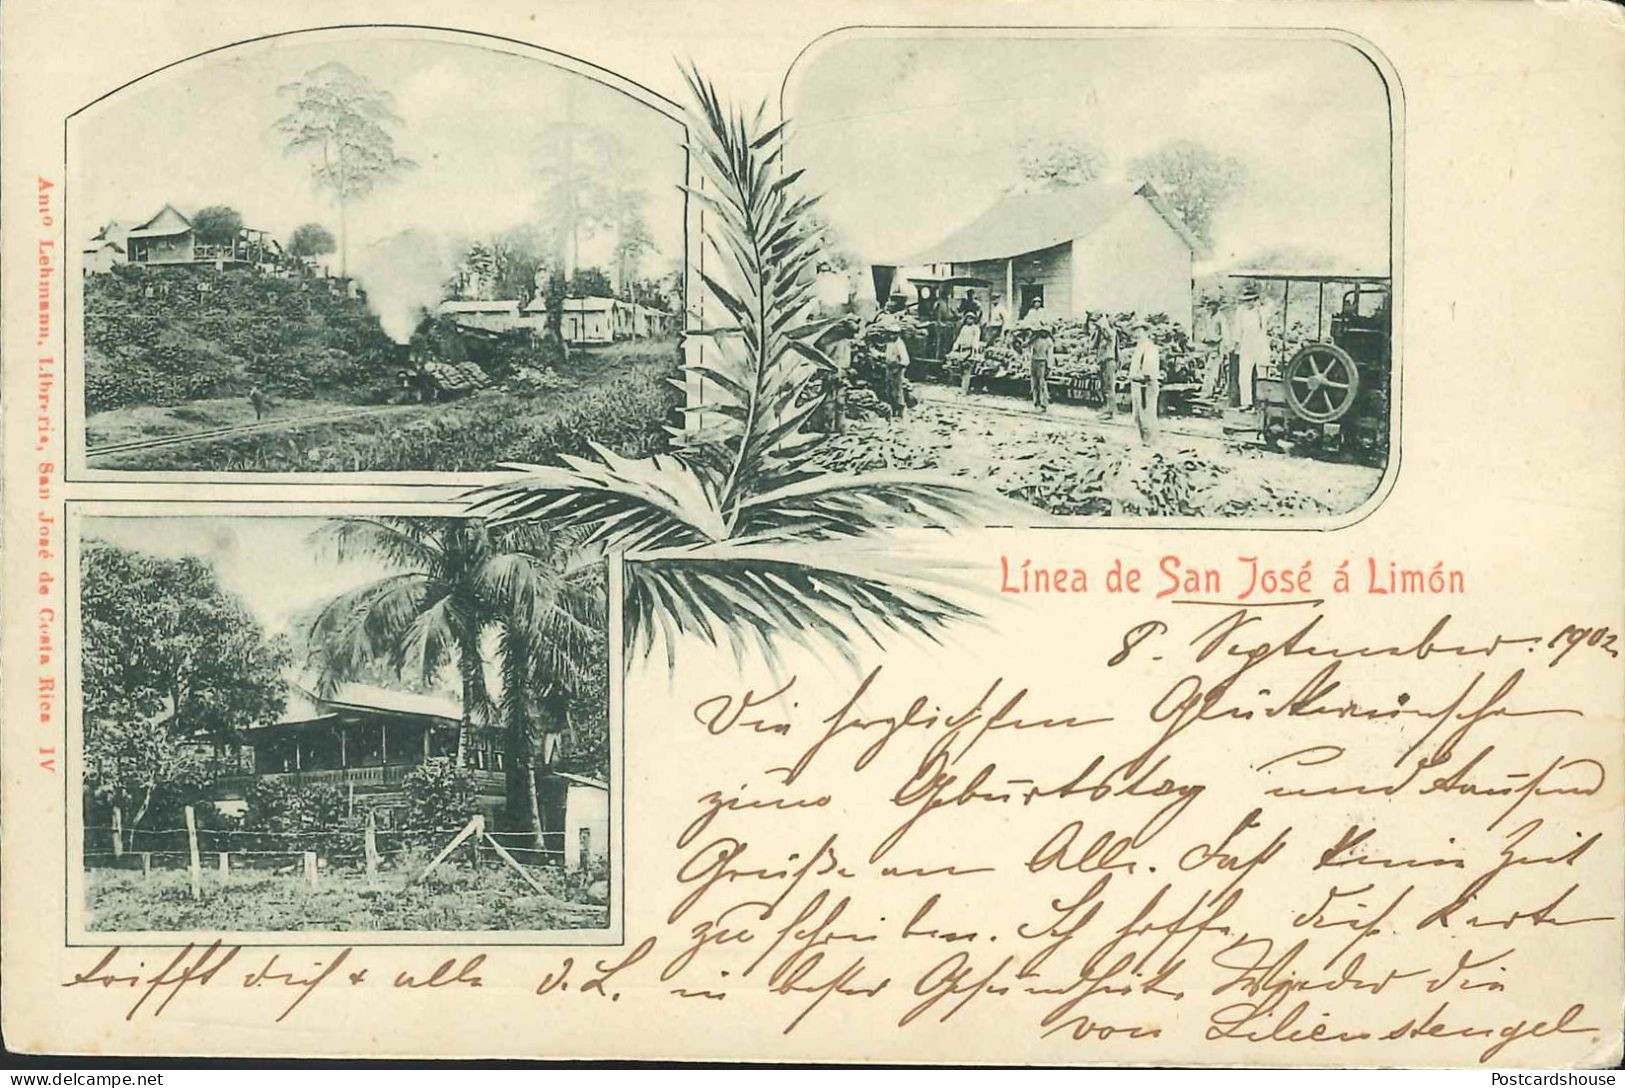 Antº Lehmann, Librería, San José de Costa Rica IV
Línea de San José á Limón
8. September 1902.
Die herzlichsten Glückwünsche
zum Geburtstag und tausend
Grüße an Alle. Fast keine Zeit
zu schreiben. Ich hoffe, diese Karte
trifft dich & alle d. L. in bester Gesundheit.
von Lilienstengel
Postcardshouse